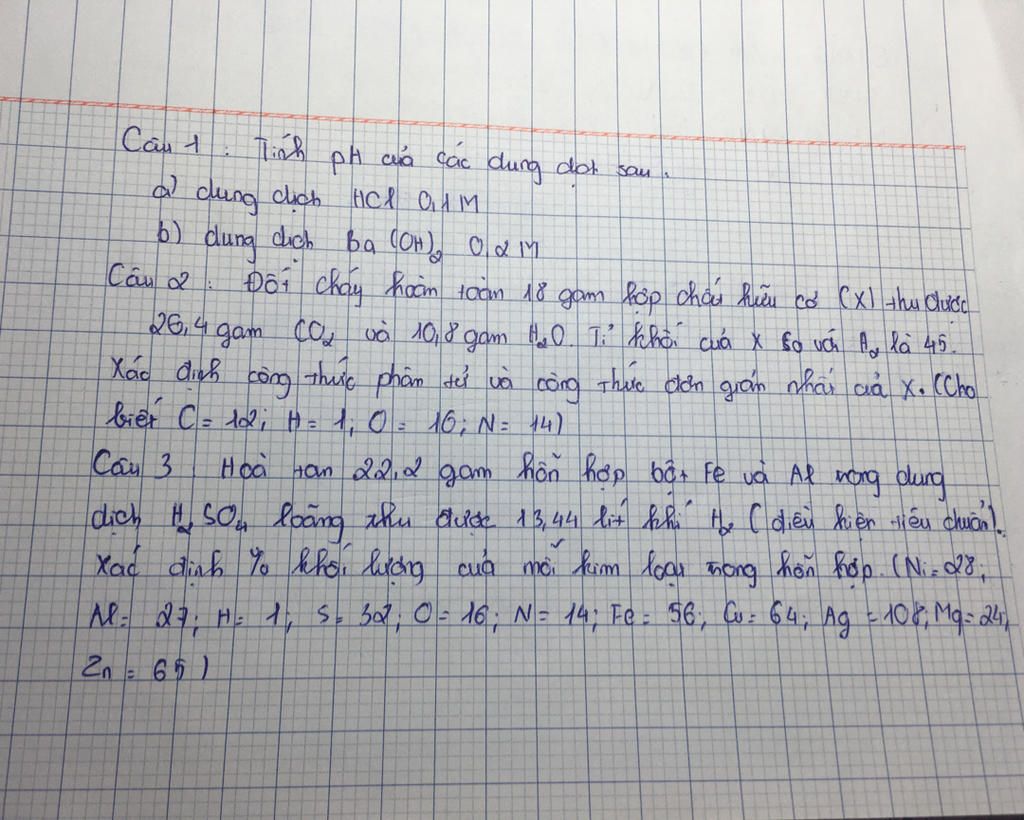 Câu 1 : Tính pH của các dung dịch sau.
a) dung dịch HCl 0,1M
b) dung dịch Ba(OH)₂ 0,2M
Câu 2 : Đốt cháy hoàn toàn 18 gam hợp chất hữu cơ (X) thu được
26,4 gam CO₂ và 10,8 gam H₂O. Tỉ khối của X so với H₂ là 45.
Xác định công thức phân tử và công thức đơn giản nhất của X. (Cho
biết C = 12; H = 1; O = 16; N = 14)
Câu 3 Hoà tan 22,2 gam hỗn hợp bột Fe và Al trong dung
dịch H₂SO₄ loãng thu được 13,44 lít khí H₂ (điều kiện tiêu chuẩn).
Xác định % khối lượng của mỗi kim loại trong hỗn hợp. (Ni = 28;
Al = 27; H = 1; S = 32; O = 16; N = 14; Fe = 56; Cu = 64; Ag = 108; Mg = 24;
Zn = 65)